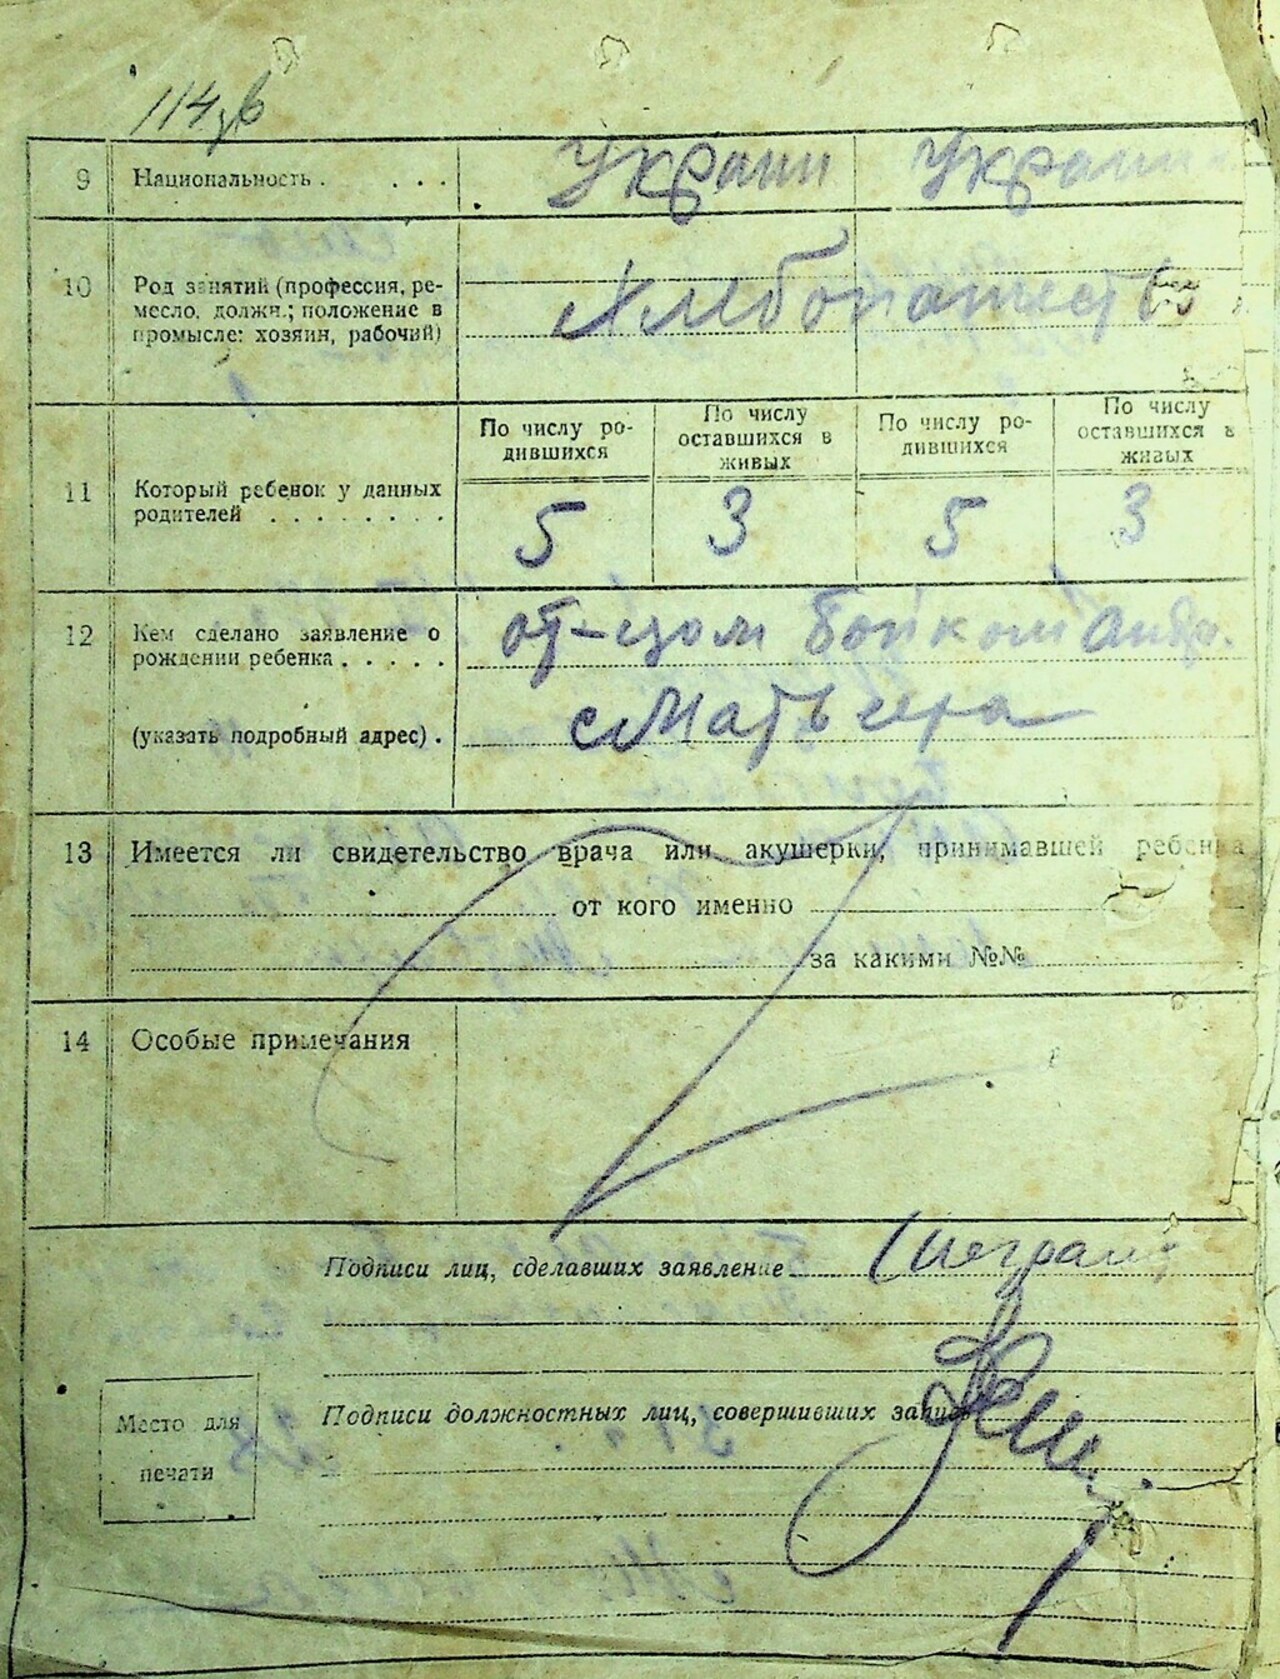 114зв
9 Национальность . . . . Украин Украин
10 Род занятий (профессия, ре-
месло, должн.; положение в
промысле: хозяин, рабочий)
Хлибопашество
11 Который ребенок у данных
родителей . . . . . . . .
По числу ро-
дившихся
По числу
оставшихся в
живых
По числу ро-
дившихся
По числу
оставшихся в
живых
5 3 5 3
12 Кем сделано заявление о
рождении ребенка . . . . .
от-цом Бойком Андр.
(указать подробный адрес) .
с Матвеевка
13 Имеется ли свидетельство врача или акушерки, принимавшей ребенка
от кого именно
за какими №№
14 Особые примечания
Подписи лиц, сделавших заявление (неграмот
Подписи должностных лиц, совершивших запись
Место для
печати